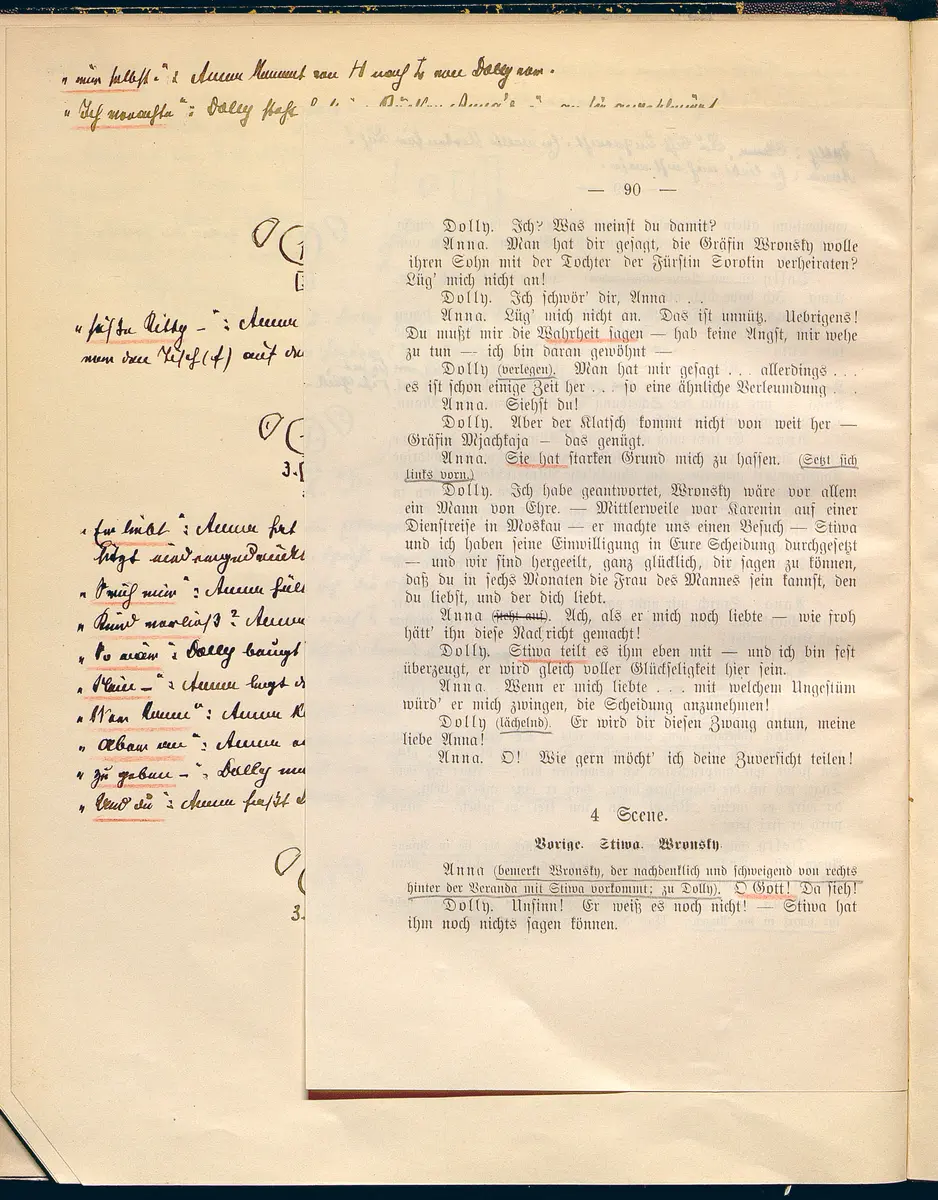 „mir selbst.": Anna kommt von H nach L von Dolly vor.
„Ich verachte": Dolly steht
„süße Kitty –": Anna
um den Tisch (f) auf
3.
„Er liebt": Anna hat
sitzt
„Sprich mir": Anna
„Kind verließ?": Anna
„So wäre": Dolly beugt
„Nein –": Anna legt
": Anna
": Anna
„zu geben –": Dolly
„Und du": Anna faßt
3.
— 90 —
Dolly. Ich? Was meinst du damit?
Anna. Man hat dir gesagt, die Gräfin Wronsky wolle
ihren Sohn mit der Tochter der Fürstin Sorokin verheiraten?
Lüg' mich nicht an!
Dolly. Ich schwör' dir, Anna . . .
Anna. Lüg' mich nicht an. Das ist unnütz. Uebrigens!
Du mußt mir die Wahrheit sagen — hab keine Angst, mir wehe
zu tun — ich bin daran gewöhnt —
Dolly (verlegen). Man hat mir gesagt . . . allerdings . . .
es ist schon einige Zeit her . . . so eine ähnliche Verleumdung . .
Anna. Siehst du!
Dolly. Aber der Klatsch kommt nicht von weit her —
Gräfin Mjachkaja — das genügt.
Anna. Sie hat starken Grund mich zu hassen. (Setzt sich
links vorn.)
Dolly. Ich habe geantwortet, Wronsky wäre vor allem
ein Mann von Ehre. — Mittlerweile war Karenin auf einer
Dienstreise in Moskau — er machte uns einen Besuch — Stiwa
und ich haben seine Einwilligung in Eure Scheidung durchgesetzt
— und wir sind hergeeilt, ganz glücklich, dir sagen zu können,
daß du in sechs Monaten die Frau des Mannes sein kannst, den
du liebst, und der dich liebt.
Anna (steht auf). Ach, als er mich noch liebte — wie froh
hätt' ihn diese Nachricht gemacht!
Dolly. Stiwa teilt es ihm eben mit — und ich bin fest
überzeugt, er wird gleich voller Glückseligkeit hier sein.
Anna. Wenn er mich liebte . . . mit welchem Ungestüm
würd' er mich zwingen, die Scheidung anzunehmen!
Dolly (lächelnd). Er wird dir diesen Zwang antun, meine
liebe Anna!
Anna. O! Wie gern möcht' ich deine Zuversicht teilen!
4 Scene.
Vorige. Stiwa. Wronsky.
Anna (bemerkt Wronsky, der nachdenklich und schweigend von rechts
hinter der Veranda mit Stiwa vorkommt; zu Dolly). O Gott! Da sieh!
Dolly. Unsinn! Er weiß es noch nicht! — Stiwa hat
ihm noch nichts sagen können.